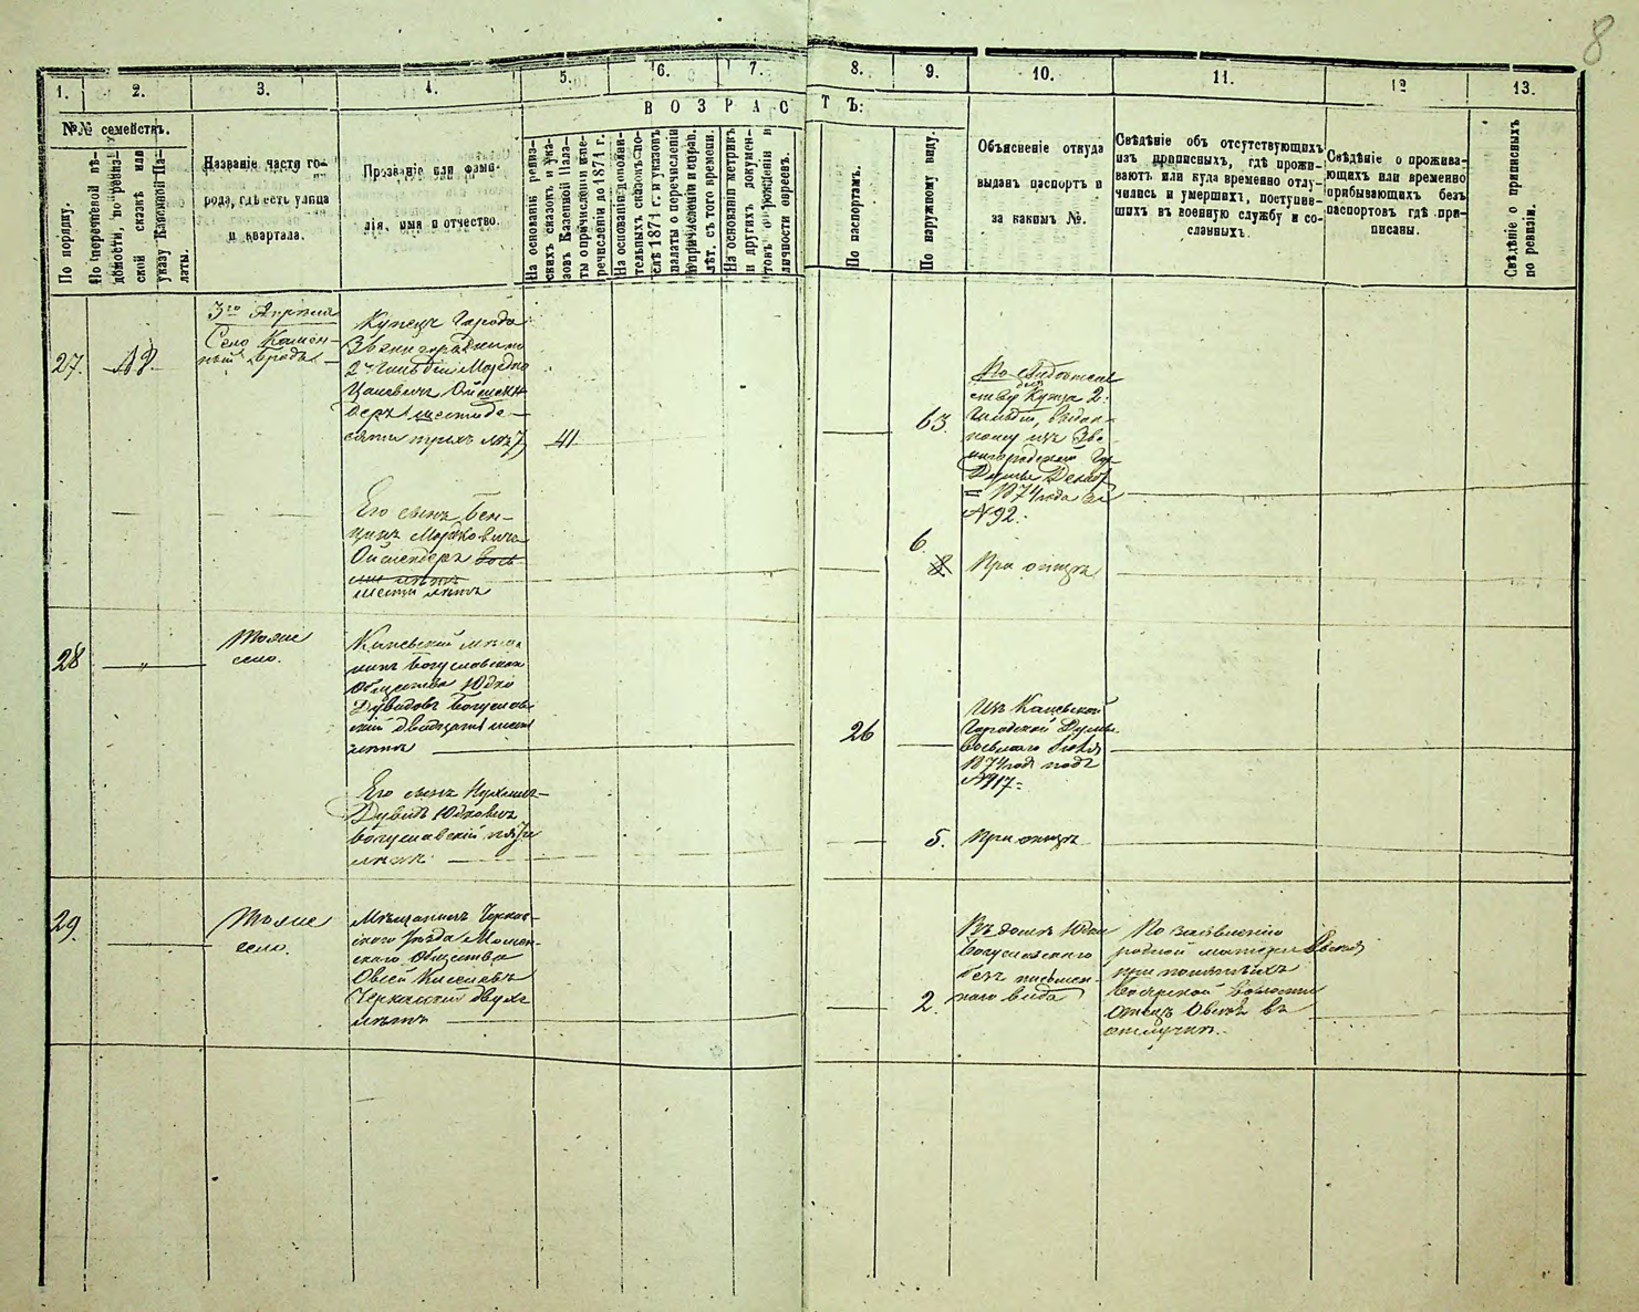 8
1.
2.
3.
4.
5.
6.
7.
8.
9.
10.
11.
12
13.
ВОЗРАСТЪ:
№№ семействъ.
По порядку.
По перечневой вѣ-
домости, по ревиз-
ской сказкѣ или
указу Казенной Па-
латы.
Названіе части го-
рода, гдѣ есть улица
и квартала.
Прозваніе или фами-
лія, имя и отчество.
На основаніи ревиз-
скихъ сказокъ и ука-
зовъ Казенной Пала-
ты о причисленіи и пе-
речисленіи до 1874 г.
На основаніи дополни-
тельныхъ сказокъ по-
слѣ 1874 г. и указовъ
палаты о перечисленіи
и причисленіи и справ.
лѣт. съ того времени.
На основаніи метрикъ
и другихъ докумен-
товъ о рожденіи и
личности евреевъ.
По паспортамъ.
По наружному виду.
Объясненіе откуда
выданъ паспортъ и
за какимъ №.
Свѣдѣніе объ отсутствующихъ
изъ приписныхъ, гдѣ прожи-
ваютъ или куда временно отлу-
чились и умершихъ, поступив-
шихъ въ военную службу и со-
сланныхъ.
Свѣдѣніе о прожива-
ющихъ или временно
прибывающихъ безъ
паспортовъ гдѣ при-
писаны.
Свѣдѣніе о приписныхъ
по ревизіи.
27.
3го Апрѣля
Село Камен-
ный Бродъ
Купецъ Города
Звенигородки
2й Гильдіи Мордко
шестиде-
сяти трехъ лѣтъ
41
63
Купца 2.
Гильдіи, выдан-
ному изъ Зве-
нигородской Гор
Думы Декабр
1874 года за
№ 92.
Его сынъ Бен-
ционъ Мордковичъ
Ойстендеръ вось
ми лѣтъ
шести лѣтъ
6.
8
При отцѣ
28
"
Тоже
село.
Каневскій мѣща-
нинъ Богуславскаго
Общества Юдко
Дувидовъ Богуслав-
скій двадцати шести
лѣтъ
26
Изъ Каневской
Городской Думы
восьмаго
1874 года подъ
№ 117.
Его сынъ Нухим-
Дувидъ Юдковичъ
Богуславскій пяти
лѣтъ
5.
При отцѣ
29.
Тоже
село.
Мѣщанинъ Черкас-
скаго Уѣзда Мошен-
скаго Общества
Овсей Киселевъ
Черкасскій двухъ
лѣтъ
2.
Въ домѣ Юдки
Богуславскаго
безъ письмен-
наго вида
По заявленію
родной матери
при понятыхъ
Боярской волости
отецъ Овсея въ
отлучкѣ.